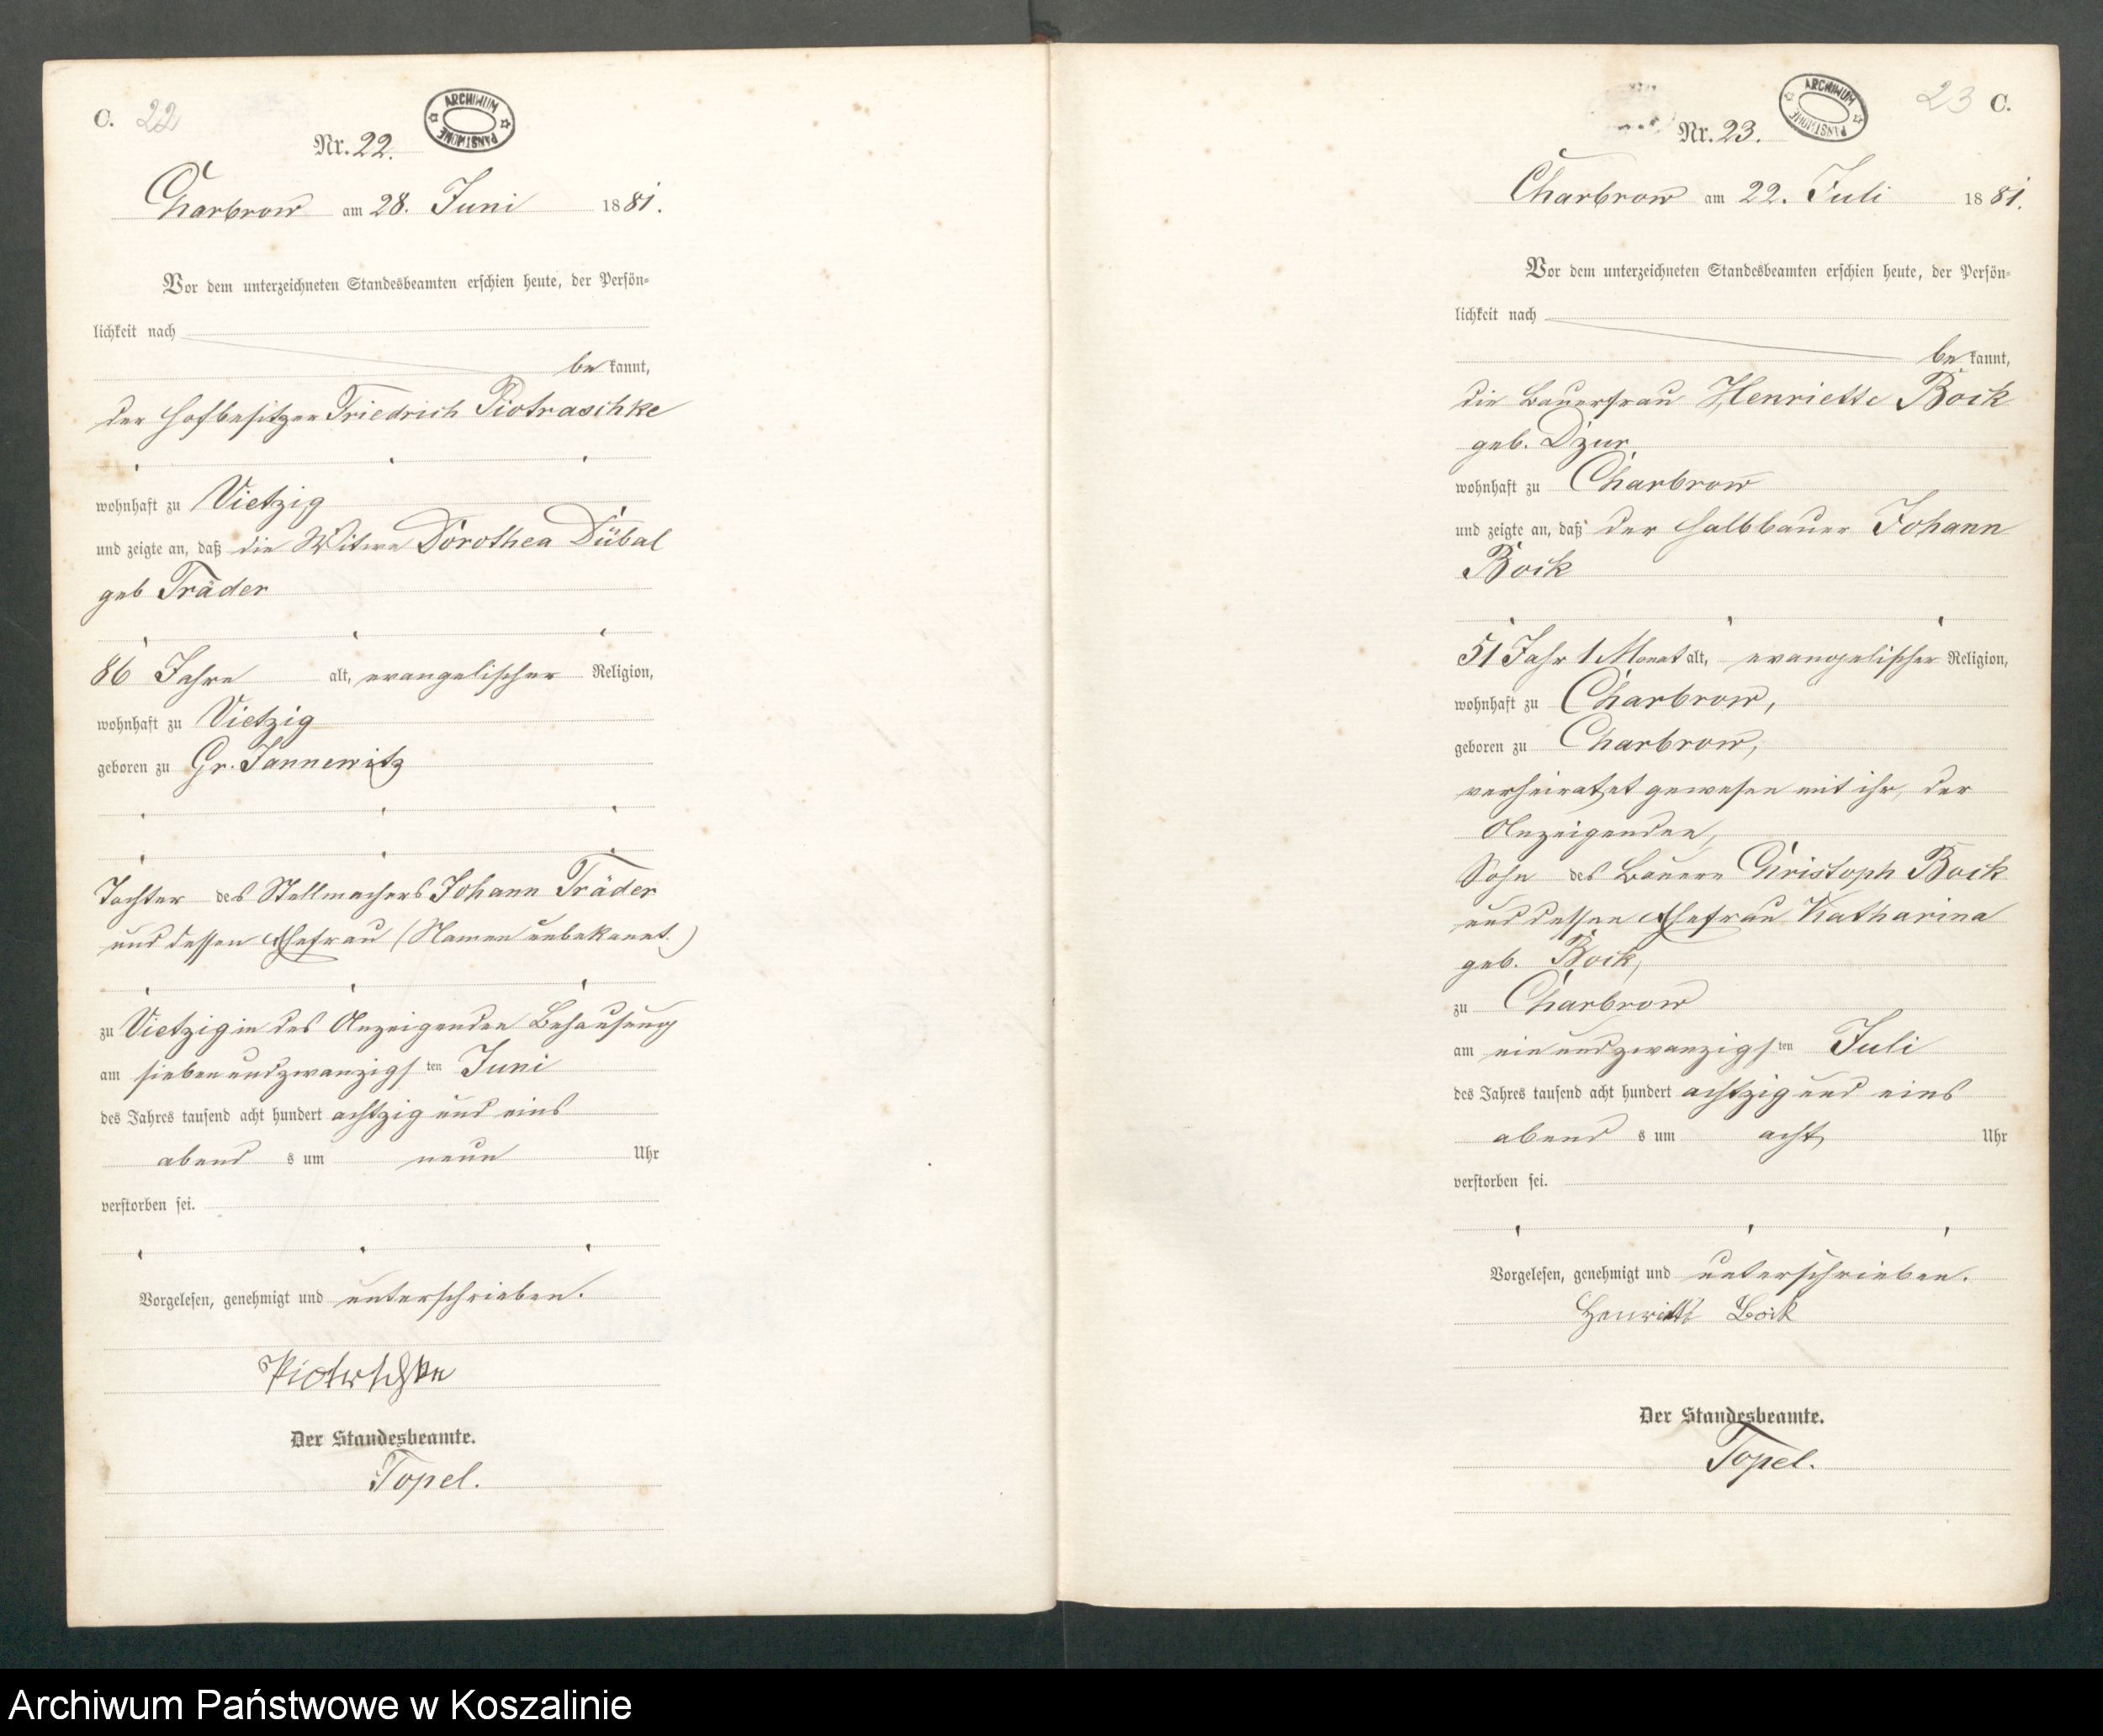 C. 22
ARCHIWUM PAŃSTWOWE
Nr. 22.
Charbrow am 28. Juni 1881.
Vor dem unterzeichneten Standesbeamten erschien heute, der Persön-
lichkeit nach
be kannt,
der Hofbesitzer Friedrich Piotraschke
wohnhaft zu Vietzig
und zeigte an, daß die Witwe Dorothea Dübal
geb Träder
86 Jahre alt, evangelischer Religion,
wohnhaft zu Vietzig
geboren zu Gr. Jannewitz
Tochter des Stellmachers Johann Träder
und dessen Ehefrau (Namen unbekannt.)
zu Vietzig in des Anzeigenden Behausung
am siebenundzwanzigs ten Juni
des Jahres tausend acht hundert achtzig und eins
abend s um neun Uhr
verstorben sei.
Vorgelesen, genehmigt und unterschrieben.
Der Standesbeamte.
Topel.
23 C.
ARCHIWUM PAŃSTWOWE
Nr. 23.
Charbrow am 22. Juli 1881.
Vor dem unterzeichneten Standesbeamten erschien heute, der Persön-
lichkeit nach
be kannt,
die Bauerfrau Henriette Bock
geb. Dzur
wohnhaft zu Charbrow
und zeigte an, daß der Halbbauer Johann
Bock
51 Jahr 1 Monat alt, evangelischer Religion,
wohnhaft zu Charbrow,
geboren zu Charbrow,
verheiratet gewesen mit ihr, der
Anzeigenden,
Sohn des Bauern Christoph Bock
und dessen Ehefrau Katharina
geb. Bock,
zu Charbrow
am einundzwanzigs ten Juli
des Jahres tausend acht hundert achtzig und eins
abend s um acht Uhr
verstorben sei.
Vorgelesen, genehmigt und unterschrieben.
Henriette Bock
Der Standesbeamte.
Topel.
Archiwum Państwowe w Koszalinie